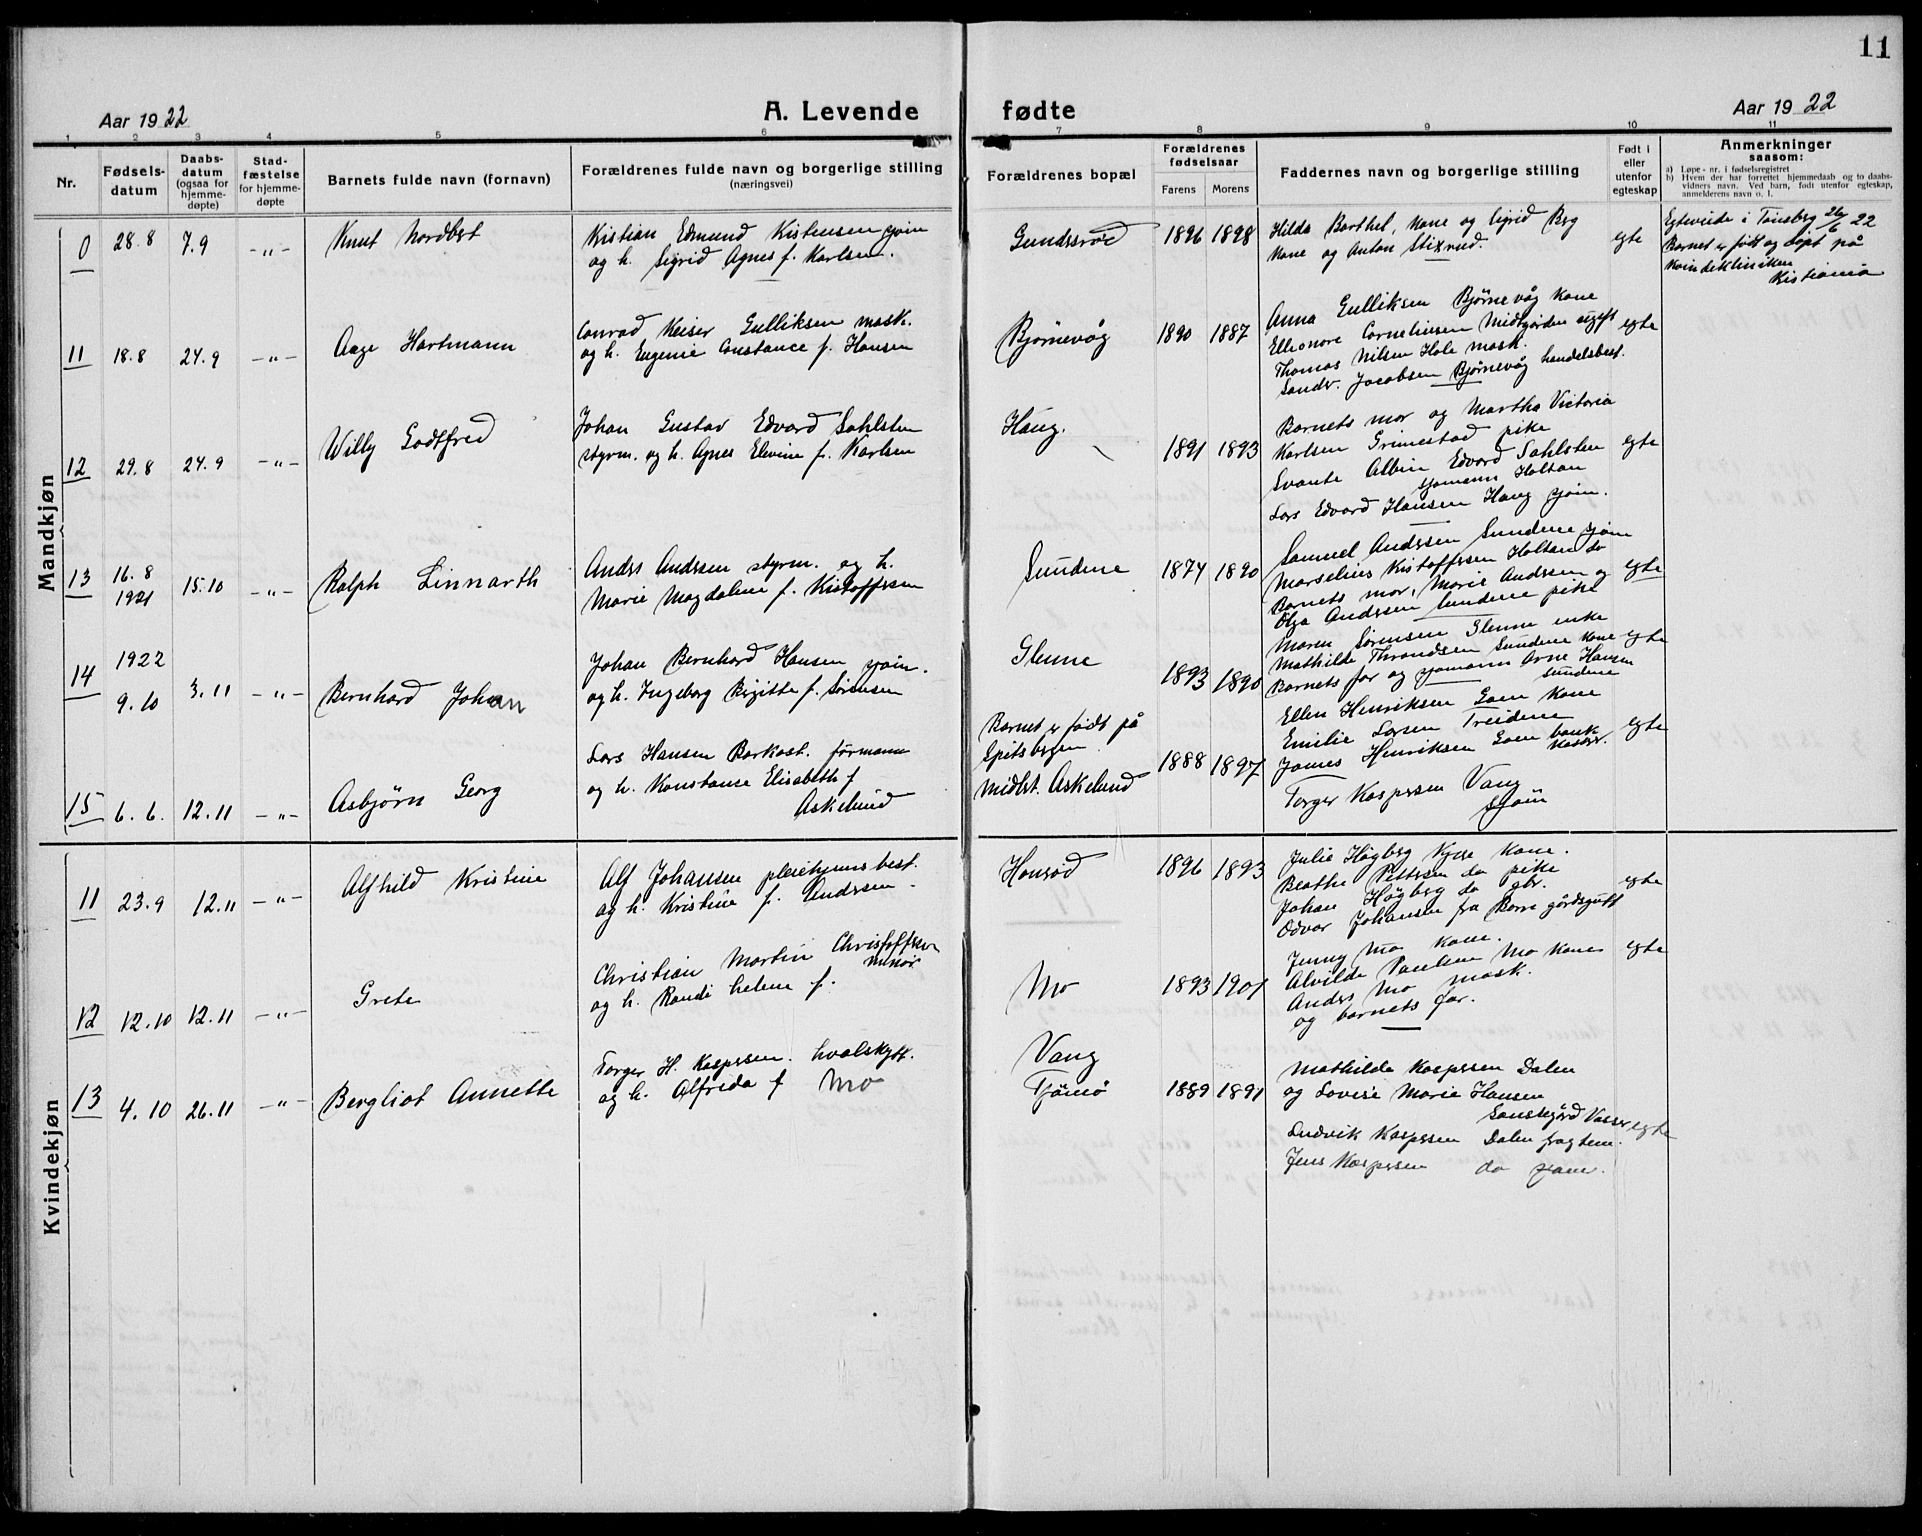 11
Aar 1922 A. Levende fødte Aar 1922
1 2 3 4 5 6 7 8 9 10 11
Nr.
Fødsels-
datum
Daabs-
datum
(ogsaa for
hjemme-
døpte)
Stad-
fæstelse
for hjemme-
døpte
Barnets fulde navn (fornavn)
Forældrenes fulde navn og borgerlige stilling
(næringsvei)
Forældrenes bopæl
Forældrenes
fødselsaar
Farens Morens
Faddernes navn og borgerlige stilling
Født i
eller
utenfor
egteskap
Anmerkninger
saasom:
a) Løpe-nr. i fødselsregistret
b) Hvem der har forrettet hjemmedaab og to daabs-
vidners navn. Ved barn, født utenfor egteskap,
anmelderens navn o. l.
Mandkjøn
0 28.8 7.9 -„- Knut Nordbert
Kristian Edmund Kristensen sjøm
og h. Sigrid Agnes f. Karlsen.
Gundersrød 1896 1898
Hilda Barthel, kone og Sigrid Berg
kone og Anton Stixrud.
egte
Egteviede i Tønsberg 26/6 22
Barnet er født og døpt på
Kvindeklinikken
Kristiania
11 18.8 24.9 -„- Aage Hartmann
Conrad Keiser Gulliksen mask.
og h. Eugenie Constance f. Hansen
Bjørnevåg 1890 1887
Anna Gulliksen Bjørnevåg kone
Elleonore Corneliusen Midtgården ugift
Thomas Nilsen Hole mask.
Sander Jacobsen Bjørnevåg handelsbest.
egte
12 29.8 24.9 -„- Willy Godtfred
Johan Gustav Edvard Sahlsten
styrm. og h. Agnes Elevine f. Karlsen
Haug. 1891 1893
Barnets mor og Martha Victoria
Karlsen Grimestad pike
Svante Albin Edvard Sahlsten
sjømann Holtan
Lars Edvard Hansen Haug sjøm.
egte
13 16.8
1921 15.10 -„- Ralph Linnarth
Anders Andersen styrm. og h.
Marie Magdalene f. Kristoffersen
Sundene 1874 1890
Samuel Andersen Sundene sjøm
Marselius Kristoffersen Holtan do
Barnets mor, Marie Andersen og
Olga Andersen Sundene pike
egte
14 1922
9.10 5.11 -„- Bernhard Johan
Johan Bernhard Hansen sjøm.
og h. Ingeborg Birgitte f. Sørensen
Glenne 1893 1890
Maren Sørensen Glenne enke
Mathilde Throndsen Sundene kone
Barnets far og sjømann Arne Hansen
Sundene
egte
15 6.6. 12.11 -„- Asbjørn Georg
Lars Hansen Barkost. førmann
og h. Konstance Elisabeth f
Askelund
Barnet er født på
Spitsbergen.
Midlert. Askelund 1888 1897
Ellen Henriksen Goen kone
Emilie Larsen Treidene
James Henriksen Goen bank
kasser.
Torger Kaspersen Vang
sjøm
egte
Kvindekjøn
11 23.9 12.11 -„- Alfhild Kristine
Alf Johansen pleiehjems best.
og h. Kristine f. Andersen.
Honerød 1896 1893
Julie Høgberg Kjære kone.
Beathe Pettersen do pike
Johan Høgberg do gbr.
Odvar Johansen fra Borre gårdsgutt
egte
12 12.10 12.11 -„- Grete
Christian Martin Christoffersen
minør
og h. Randi helene f.
Mo 1893 1901
Jenny Mo kone.
Alvilde Paulsen Mo kone
Anders Mo mask.
og barnets far.
egte
13 4.10 26.11 -„- Bergliot Annette
Torger H. Kaspersen. hvalskytt.
og h. Alfrida f Mo
Vang
Tjømø 1889 1891
Mathilde Kaspersen Dalen
og Lovise Marie Hansen
Vasser
Ludvik Kaspersen Dalen fragtem.
Jens Kaspersen do sjøm.
egte